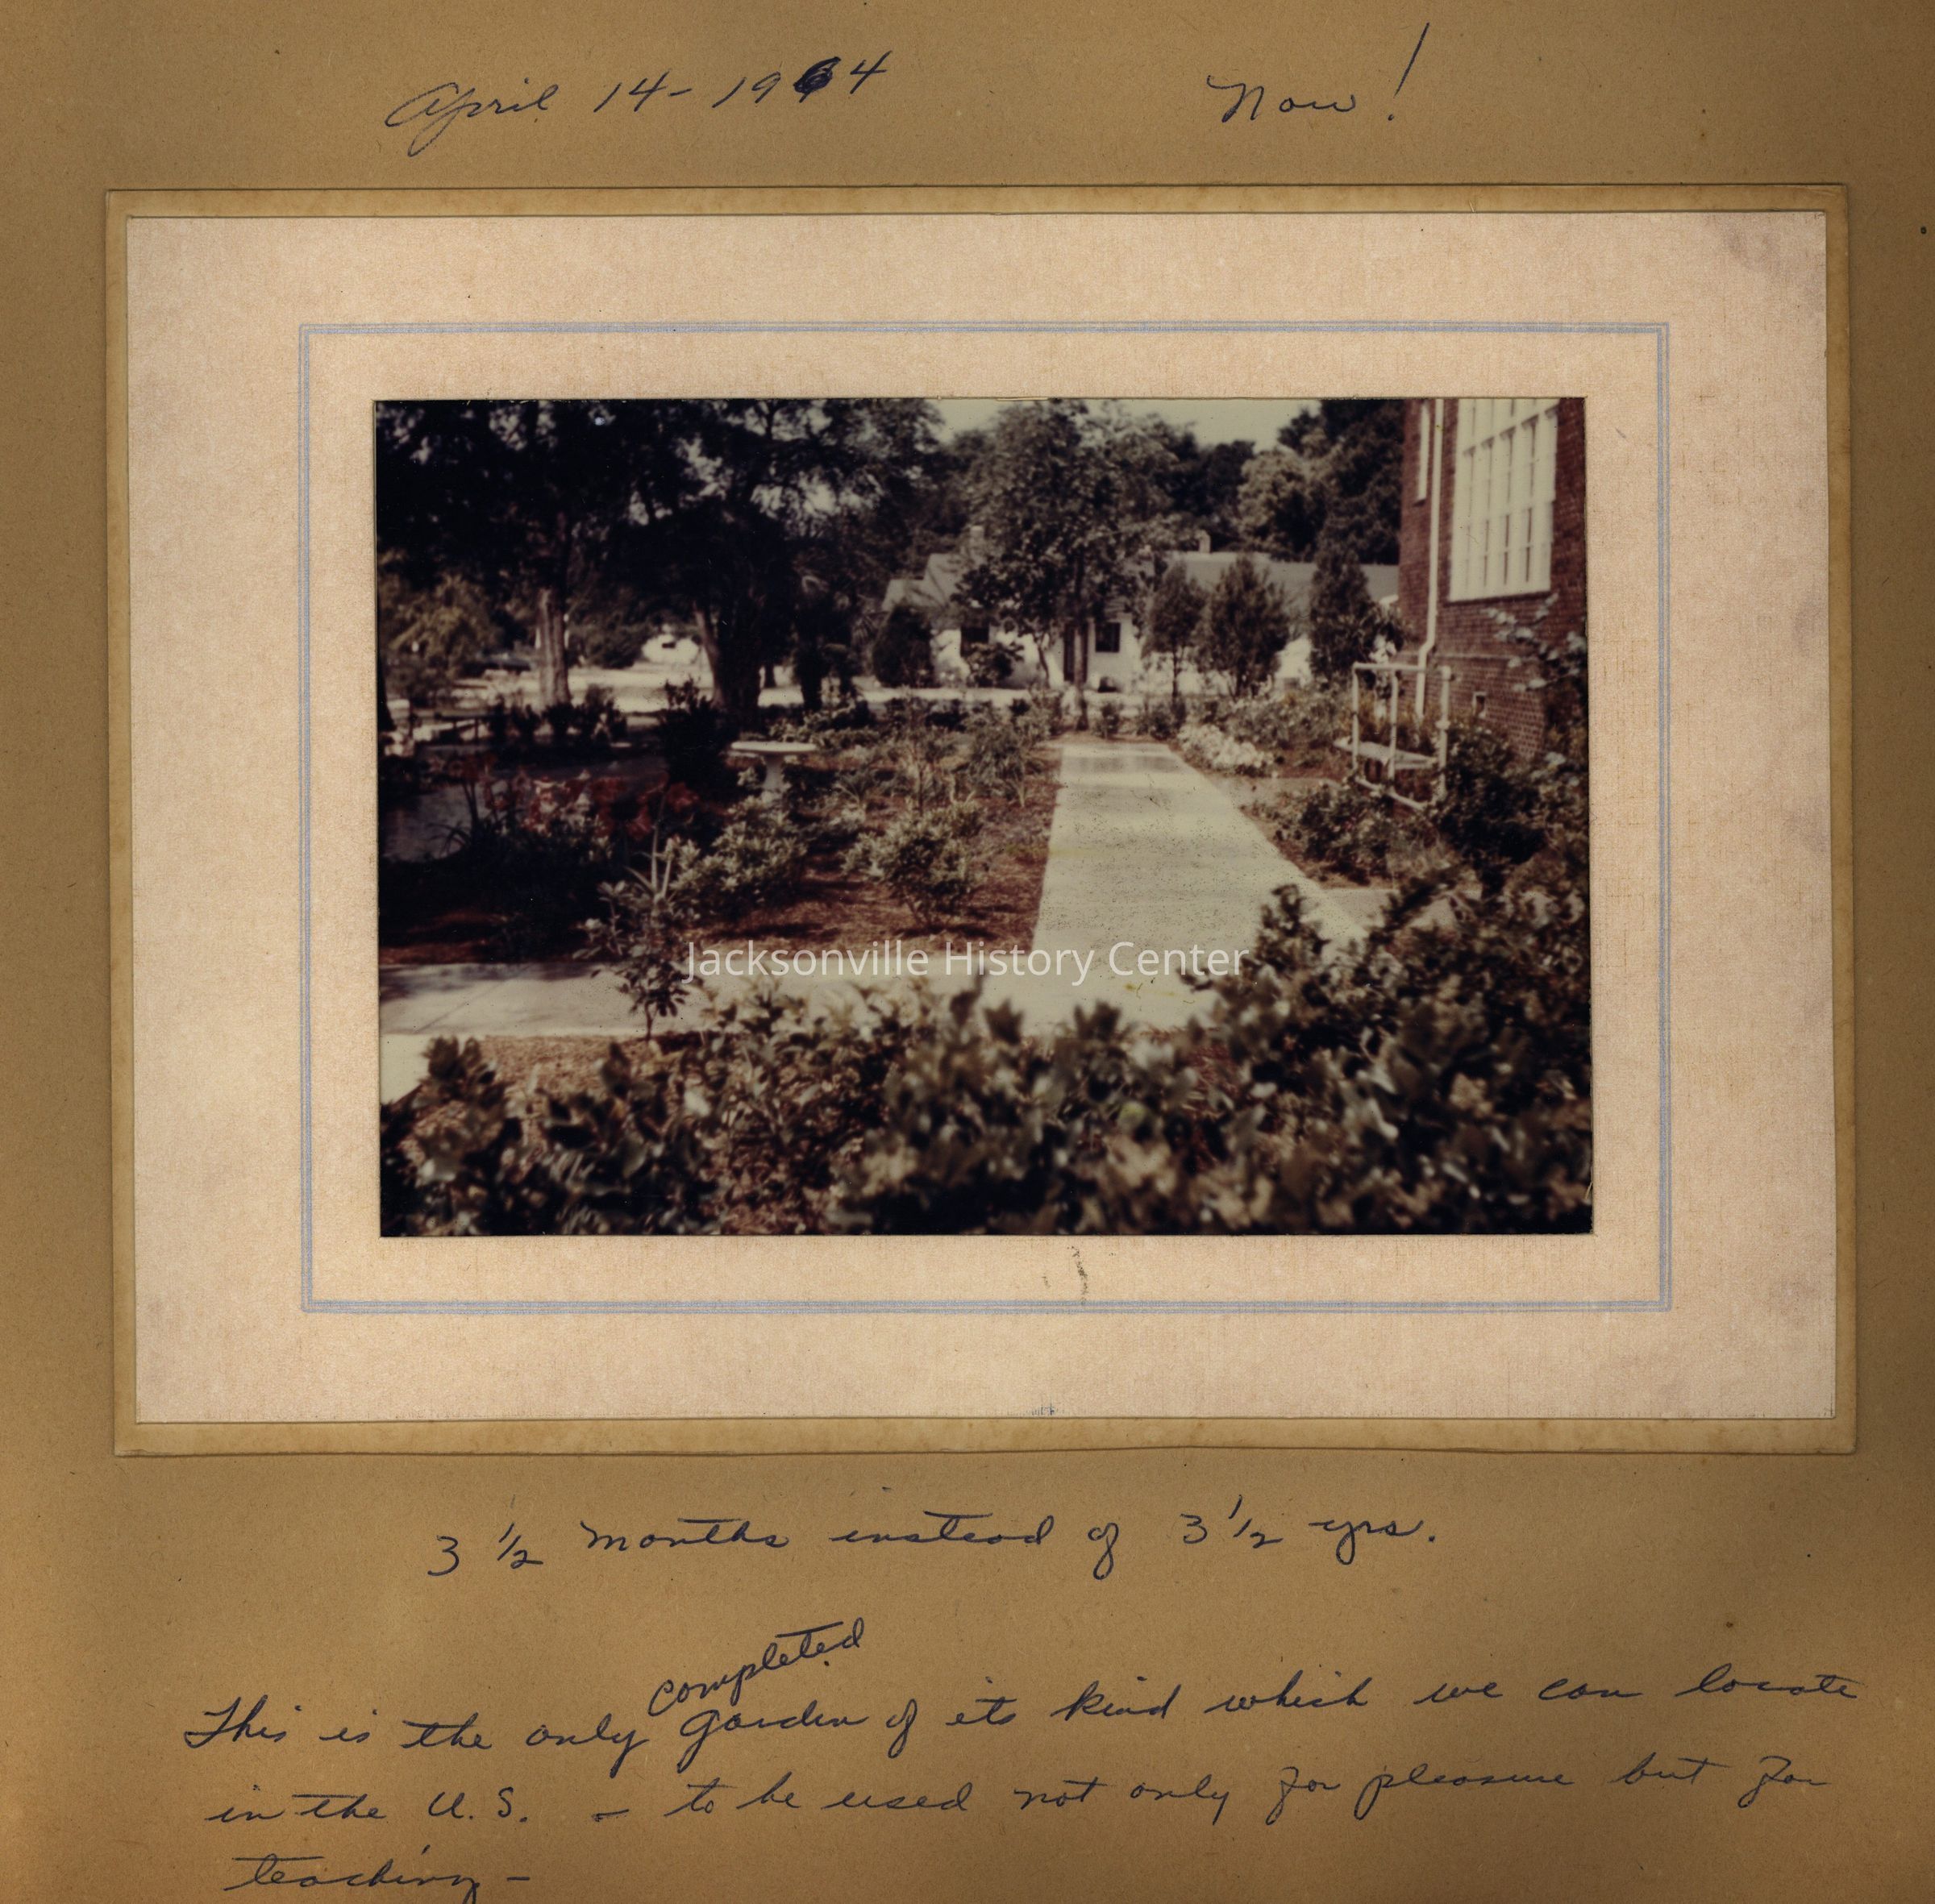 April 14- 1964 Now!
Jacksonville History Center
3 1/2 months instead of 3 1/2 yrs.
completed
This is the only garden of its kind which we can locate
in the U.S. - to be used not only for pleasure but for
teaching -